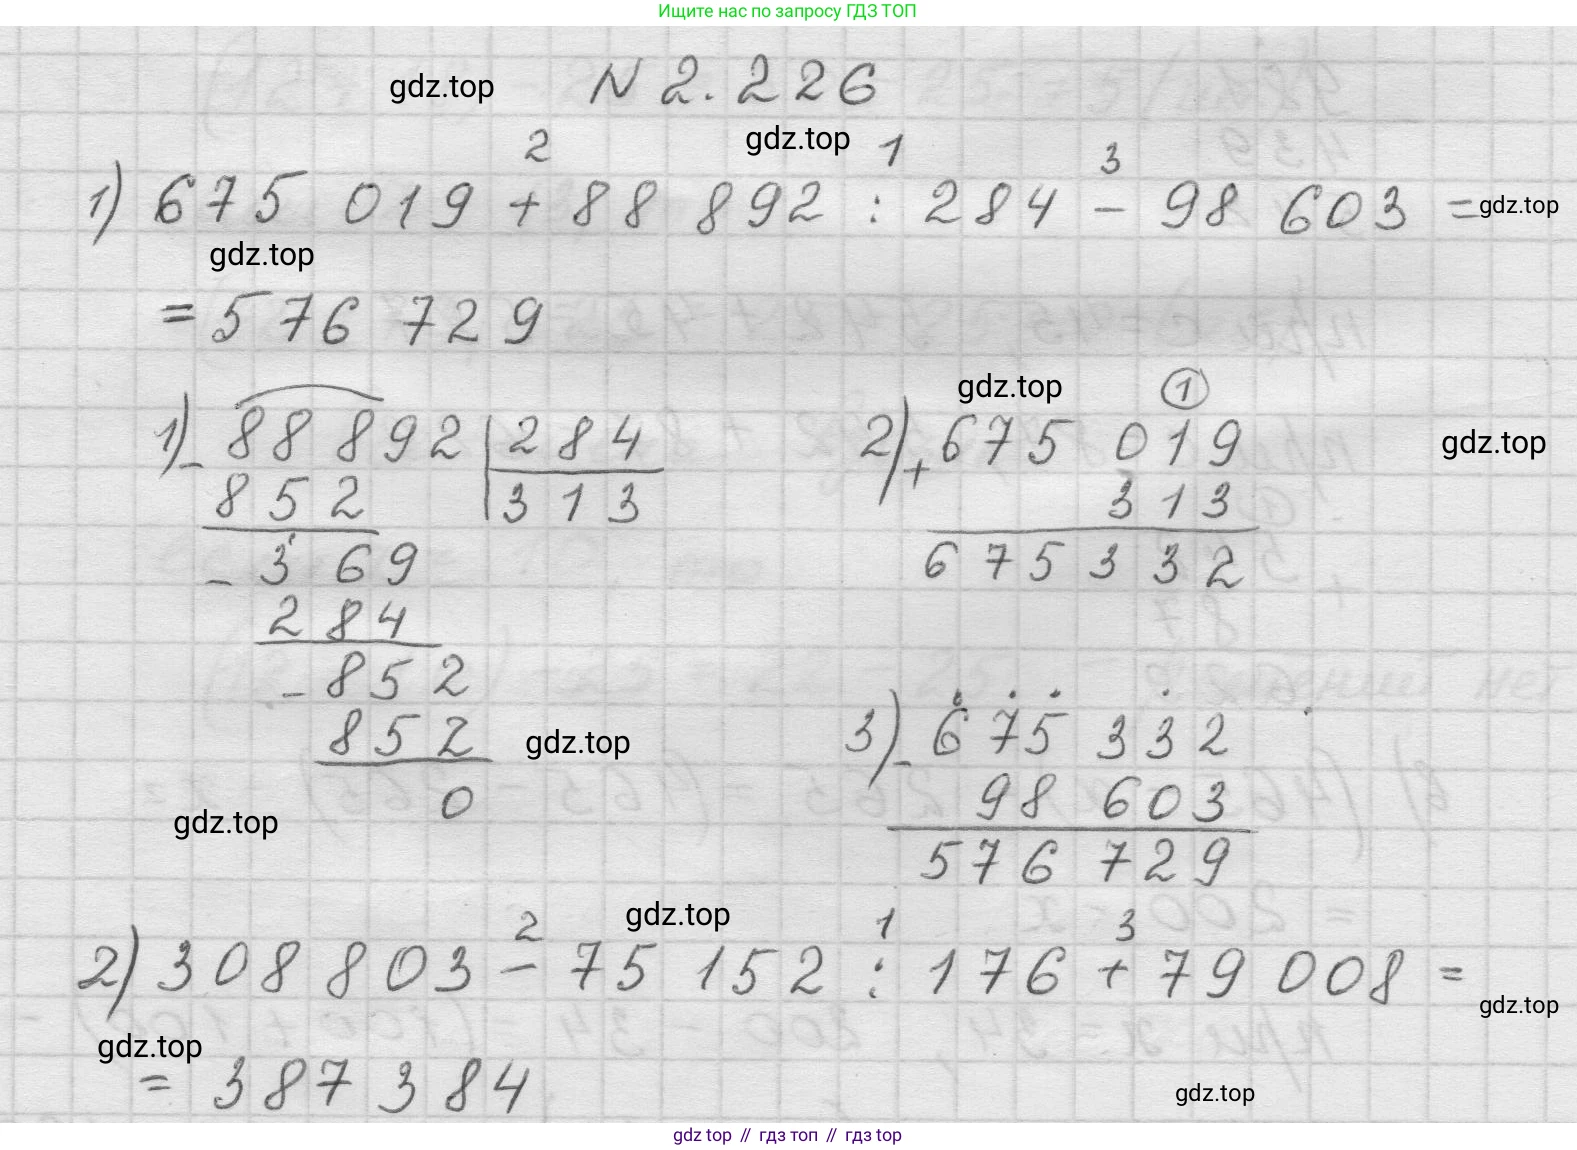 Ищите нас по запросу ГДЗ ТОП
gdz.top
N 2.226
gdz.top
2 1 3
1) 675 019 + 88 892 : 284 - 98 603 =
gdz.top
gdz.top
= 576 729
1) - 88 892 | 284
852 313
- 369
284
- 852
852
0
gdz.top
1
2) + 675 019
313
675 332
gdz.top
gdz.top
gdz.top
3) - 675 332
98 603
576 729
gdz.top
2 1 3
2) 308 803 - 75 152 : 176 + 79 008 =
gdz.top
gdz.top
= 387 384
gdz.top
gdz top // гдз топ // гдз top